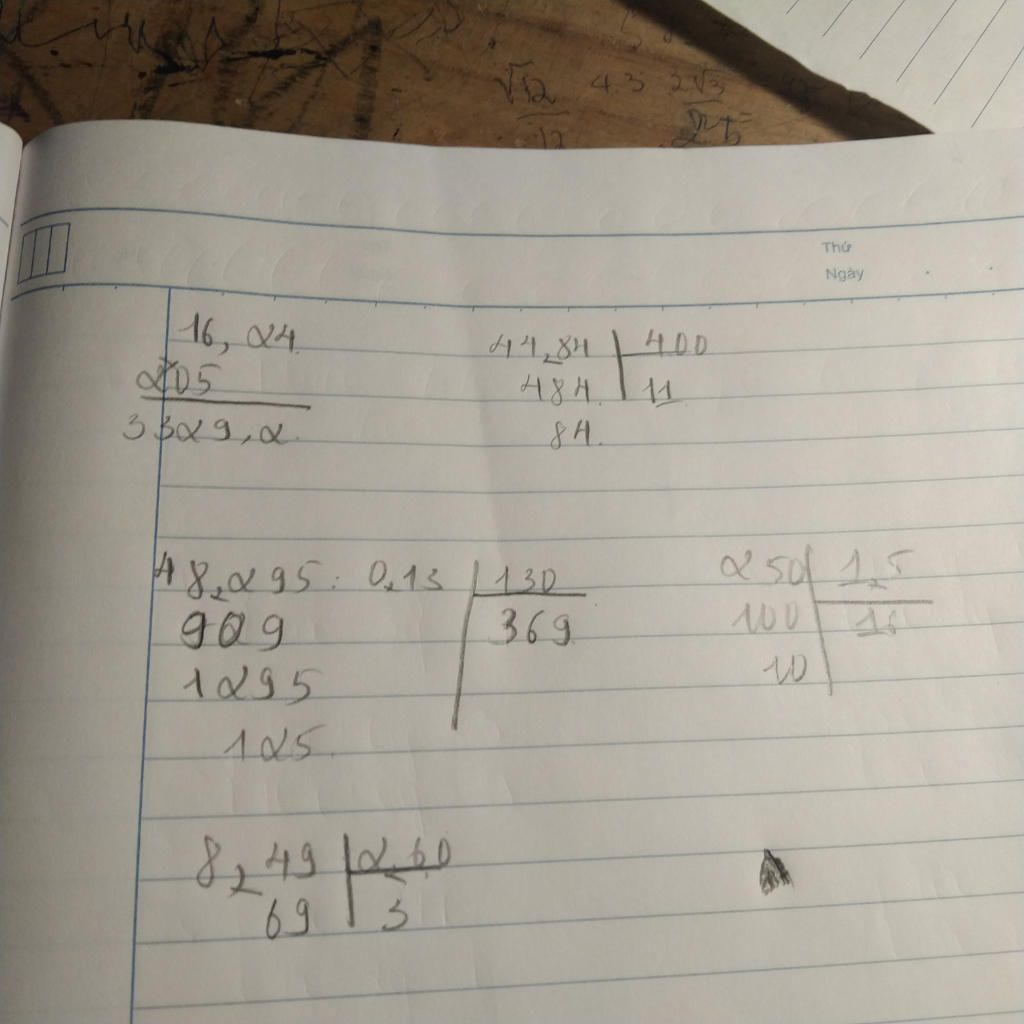 √12 43 2√3
12
Thứ
Ngày
16, 24
205
3329,2
44,84 400
484 11
84.
48,295: 0,13 130
909 369
1295
125.
250 1,5
100 16
10
8,49 2,60
69 3